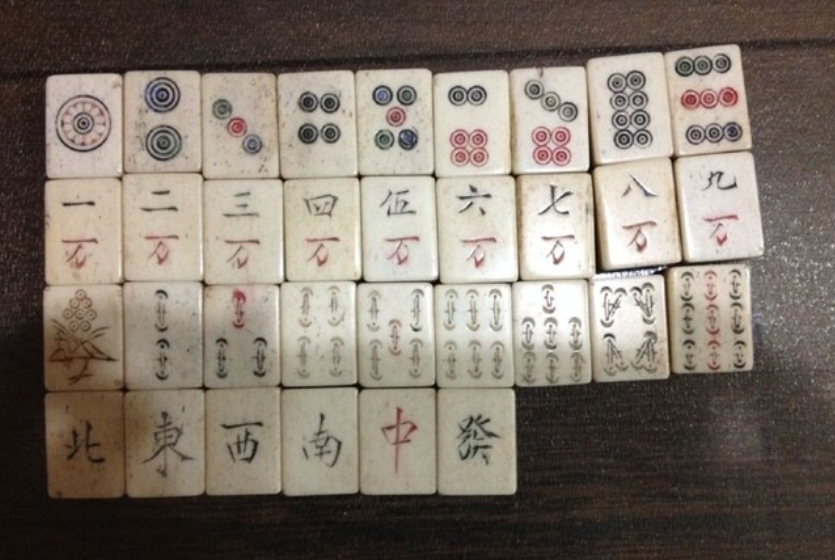 一 二 三 四 伍 六 七 八 九
万 万 万 万 万 万 万 万 万
北 東 西 南 中 發